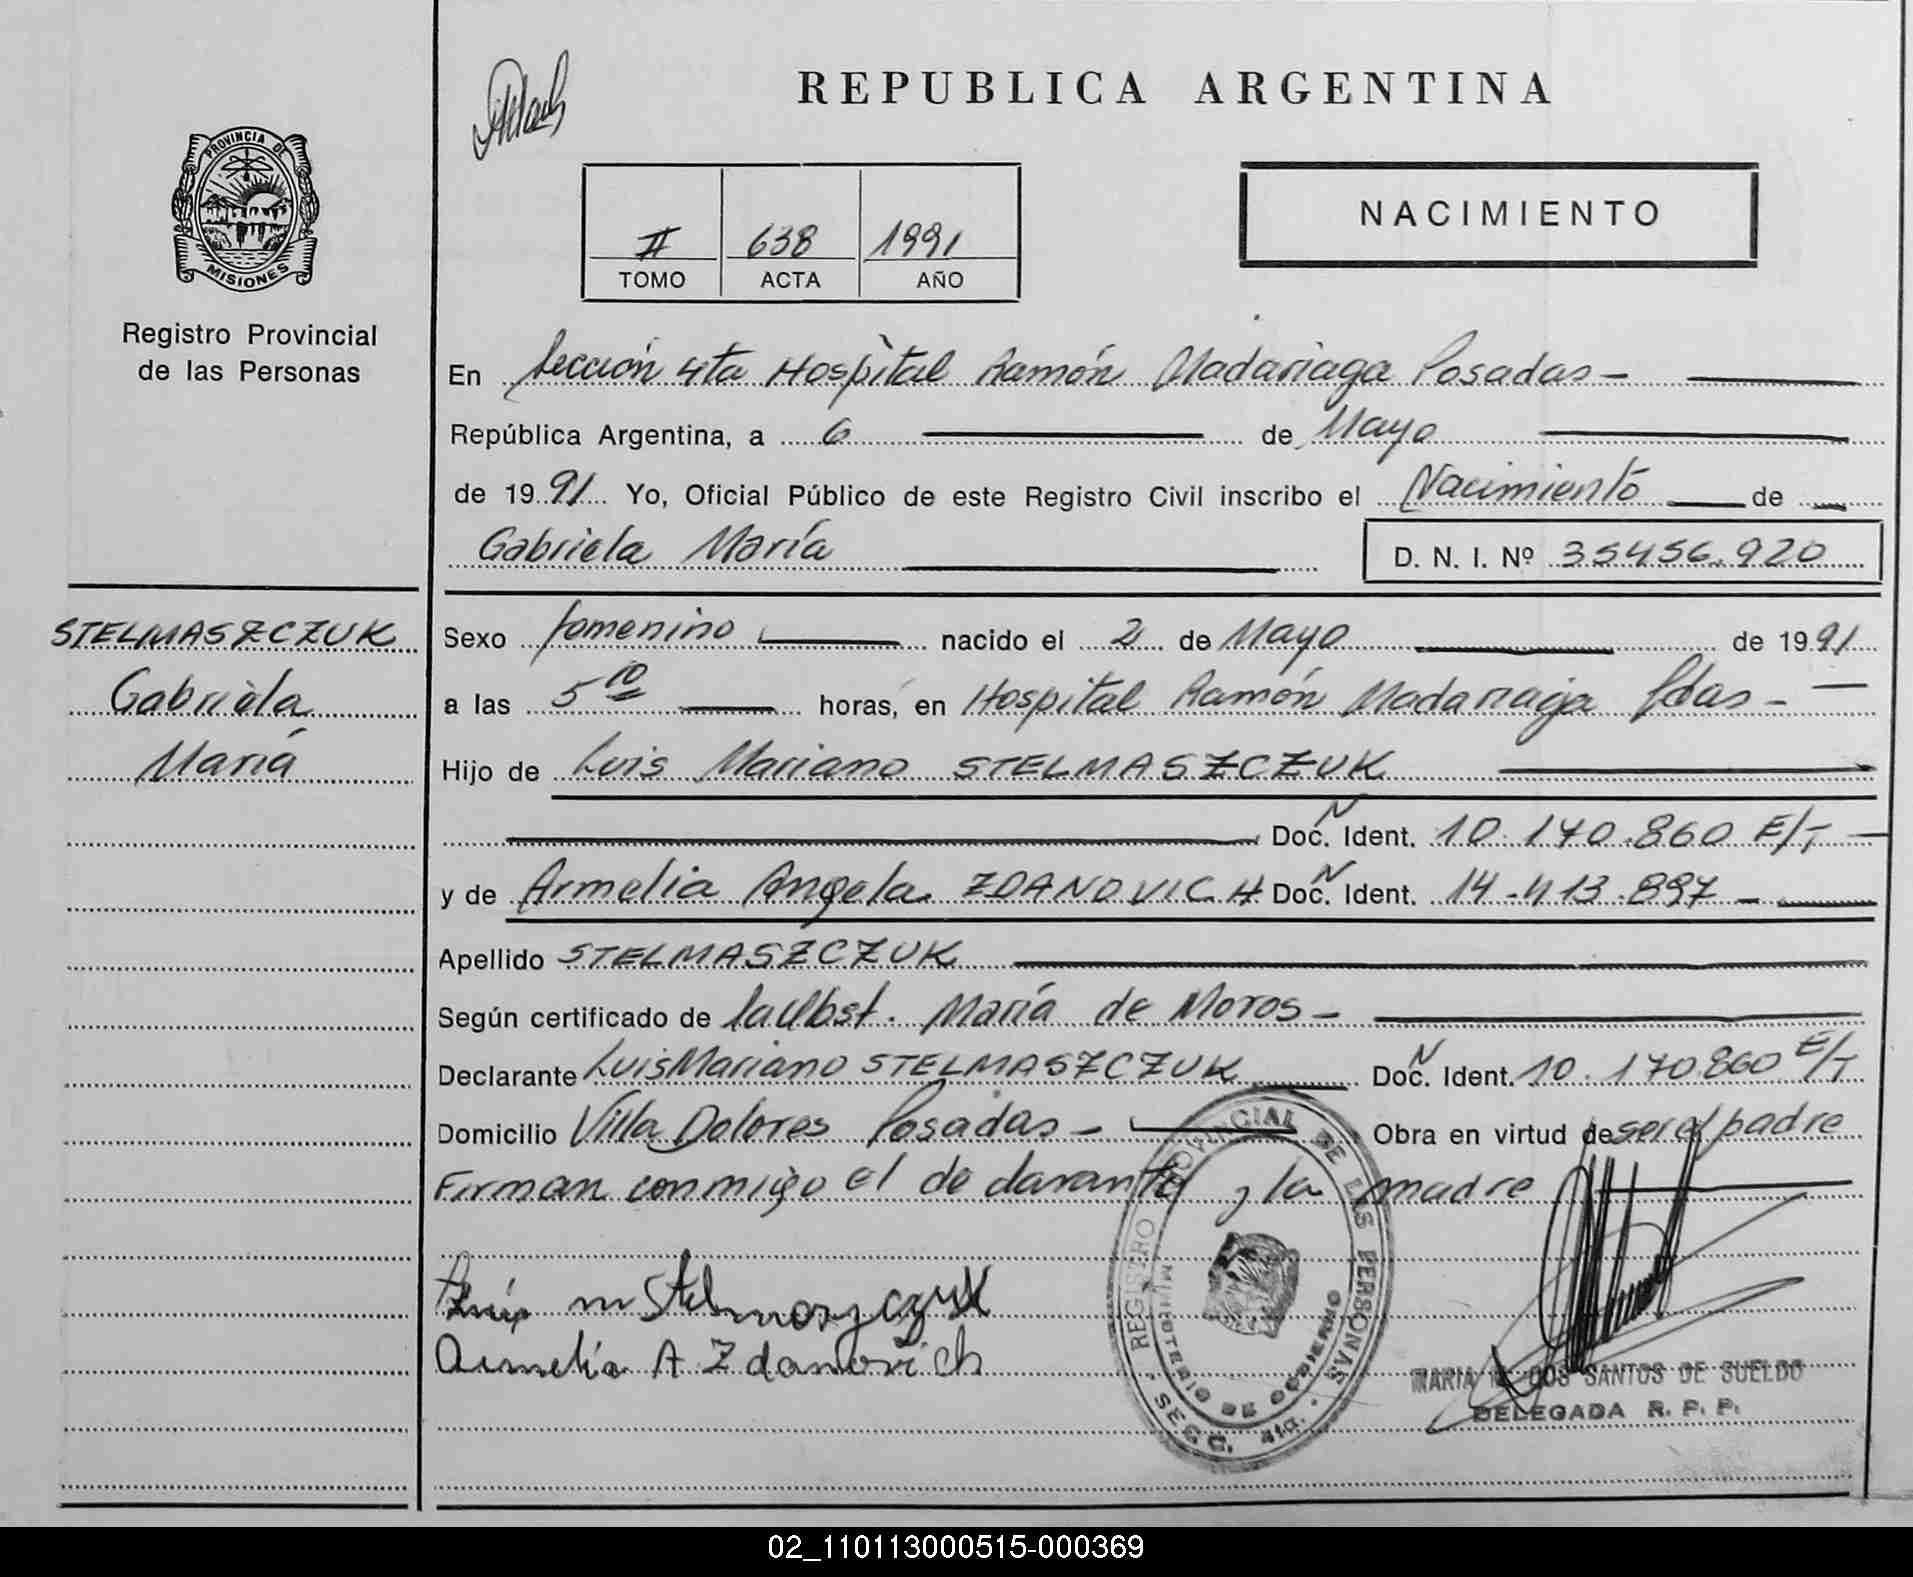 REPUBLICA ARGENTINA
PROVINCIA DE
MISIONES
Registro Provincial
de las Personas
II 638 1991
TOMO ACTA AÑO
NACIMIENTO
En Sección 4ta Hospital Ramón Madariaga Posadas -
República Argentina, a 6 de Mayo
de 1991 Yo, Oficial Público de este Registro Civil inscribo el Nacimiento de
Gabriela María D. N. I. Nº 35456.920
STELMASZCZUK
Gabriela
María
Sexo femenino nacido el 2 de Mayo de 1991
a las 5 10 horas, en Hospital Ramón Madariaga Pdas -
Hijo de Luis Mariano STELMASZCZUK
Doc. N Ident. 10.170.860 E/T
y de Armelia Angela ZDANOVICH Doc. N Ident. 14.413.897 -
Apellido STELMASZCZUK
Según certificado de la Obst. María de Moros -
Declarante Luis Mariano STELMASZCZUK Doc. N Ident. 10.170.860 E/T
Domicilio Villa Dolores Posadas - Obra en virtud de ser el padre
Firman conmigo el declarante y la madre
Luis m Stelmaszczuk
Armelia A Zdanovich
REGISTRO PROVINCIAL DE LAS PERSONAS
MINISTERIO DE GOBIERNO
SECC. 4ta.
MARIA DOS SANTOS DE SUELDO
DELEGADA R. P. P.
02_110113000515-000369